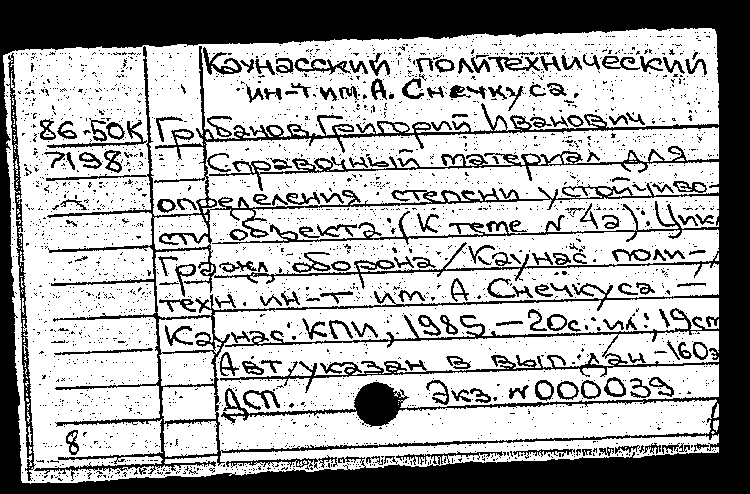 Каунасский политехнический
ин-т им. А. Снечкуса.
86-50К Грибанов, Григорий Иванович
7198 Справочный материал для
определения степени устойчиво-
сти объекта: (К теме N 4а): Цикл
Гражд. оборона / Каунас. поли-
техн. ин-т им. А. Снечкуса. —
Каунас: КПИ, 1985. — 20с.: ил.; 19см
Авт. указан в вып. дан. - 160э
ДСП.. Экз. N 000039
8